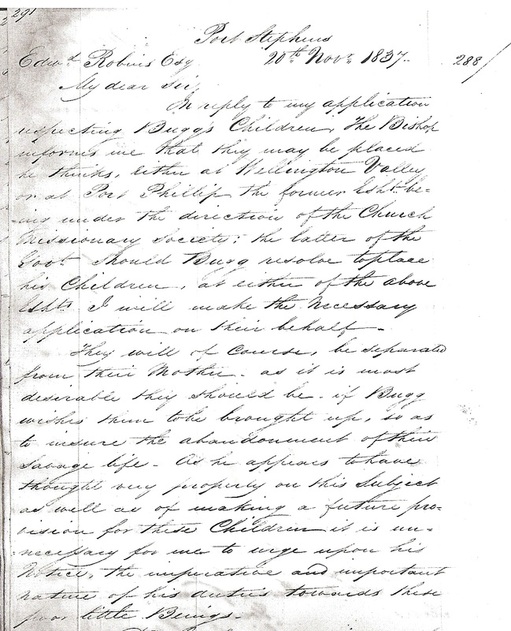 291
Port Stephens
Edwd Robins Esq 20th Novr 1837. 288/
My dear Sir,
In reply to my application
respecting Bugg's Children, The Bishop
informs me that they may be placed
he thinks, either at Wellington Valley
or at Port Phillip, the former Esht. be-
-ing under the direction of the Church
Missionary Society; the latter of the
Govt Should Bugg resolve to place
his Children, at either of the above
Eshts I will make the necessary
application on their behalf.
They will of Course, be separated
from their Mother. as it is most
desirable they should be. if Bugg
wishes them to be brought up, so as
to insure the abandonment of their
Savage life. As he appears to have
thought very properly on this Subject
as well as of making a future pro-
vision for these Children it is un-
necessary for me to urge upon his
Notice, the imperative and important
nature of his duties towards these
poor little Beings.